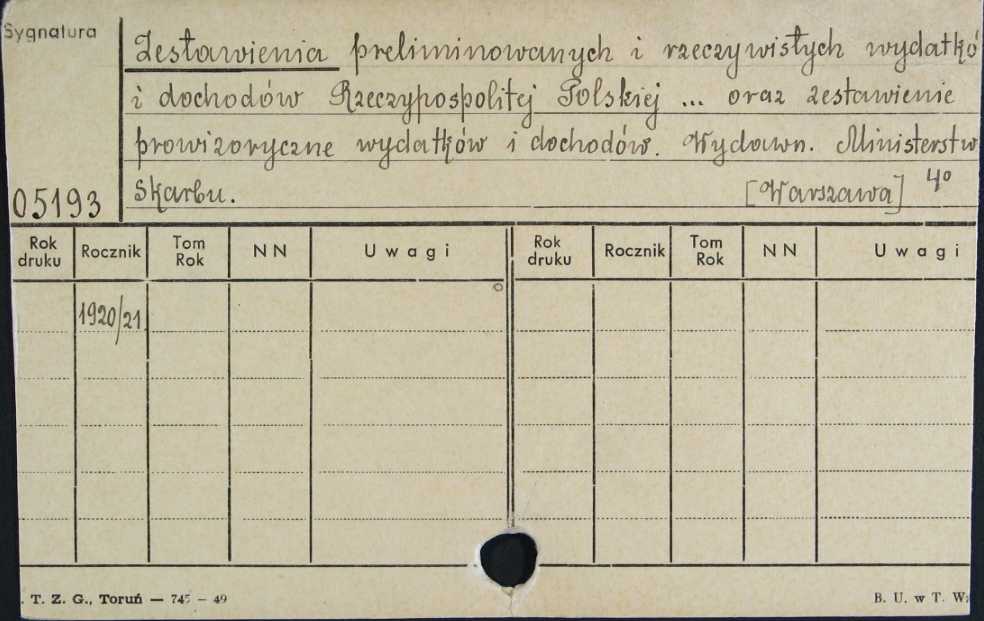 Sygnatura
Zestawienia preliminowanych i rzeczywistych wydatkó
i dochodów Rzeczypospolitej Polskiej ... oraz zestawienie
prowizoryczne wydatków i dochodów. Wydawn. Ministerstw
Skarbu. [Warszawa] 4°
05193
Rok druku Rocznik Tom Rok NN Uwagi Rok druku Rocznik Tom Rok NN Uwagi
1920/21
T. Z. G., Toruń — 745 — 49
B. U. w T. W